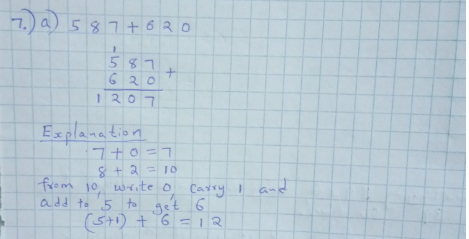 7.) a) 587 + 620
1
587
620 +
1207
Explanation
7 + 0 = 7
8 + 2 = 10
from 10, write 0, carry 1 and
add to 5 to get 6
(5+1) + 6 = 12